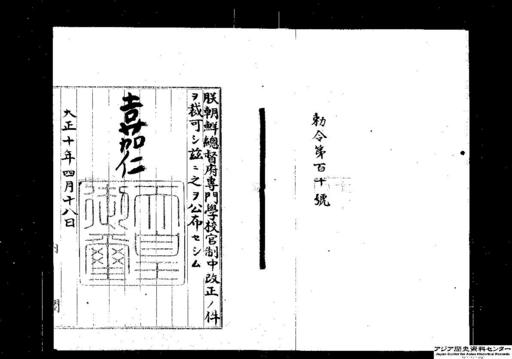 勅令第百十號
朕朝鮮總督府專門學校官制中改正ノ件
ヲ裁可シ茲ニ之ヲ公布セシム
嘉仁
天皇
御璽
大正十年四月十八日
アジア歴史資料センター
Japan Center for Asian Historical Records